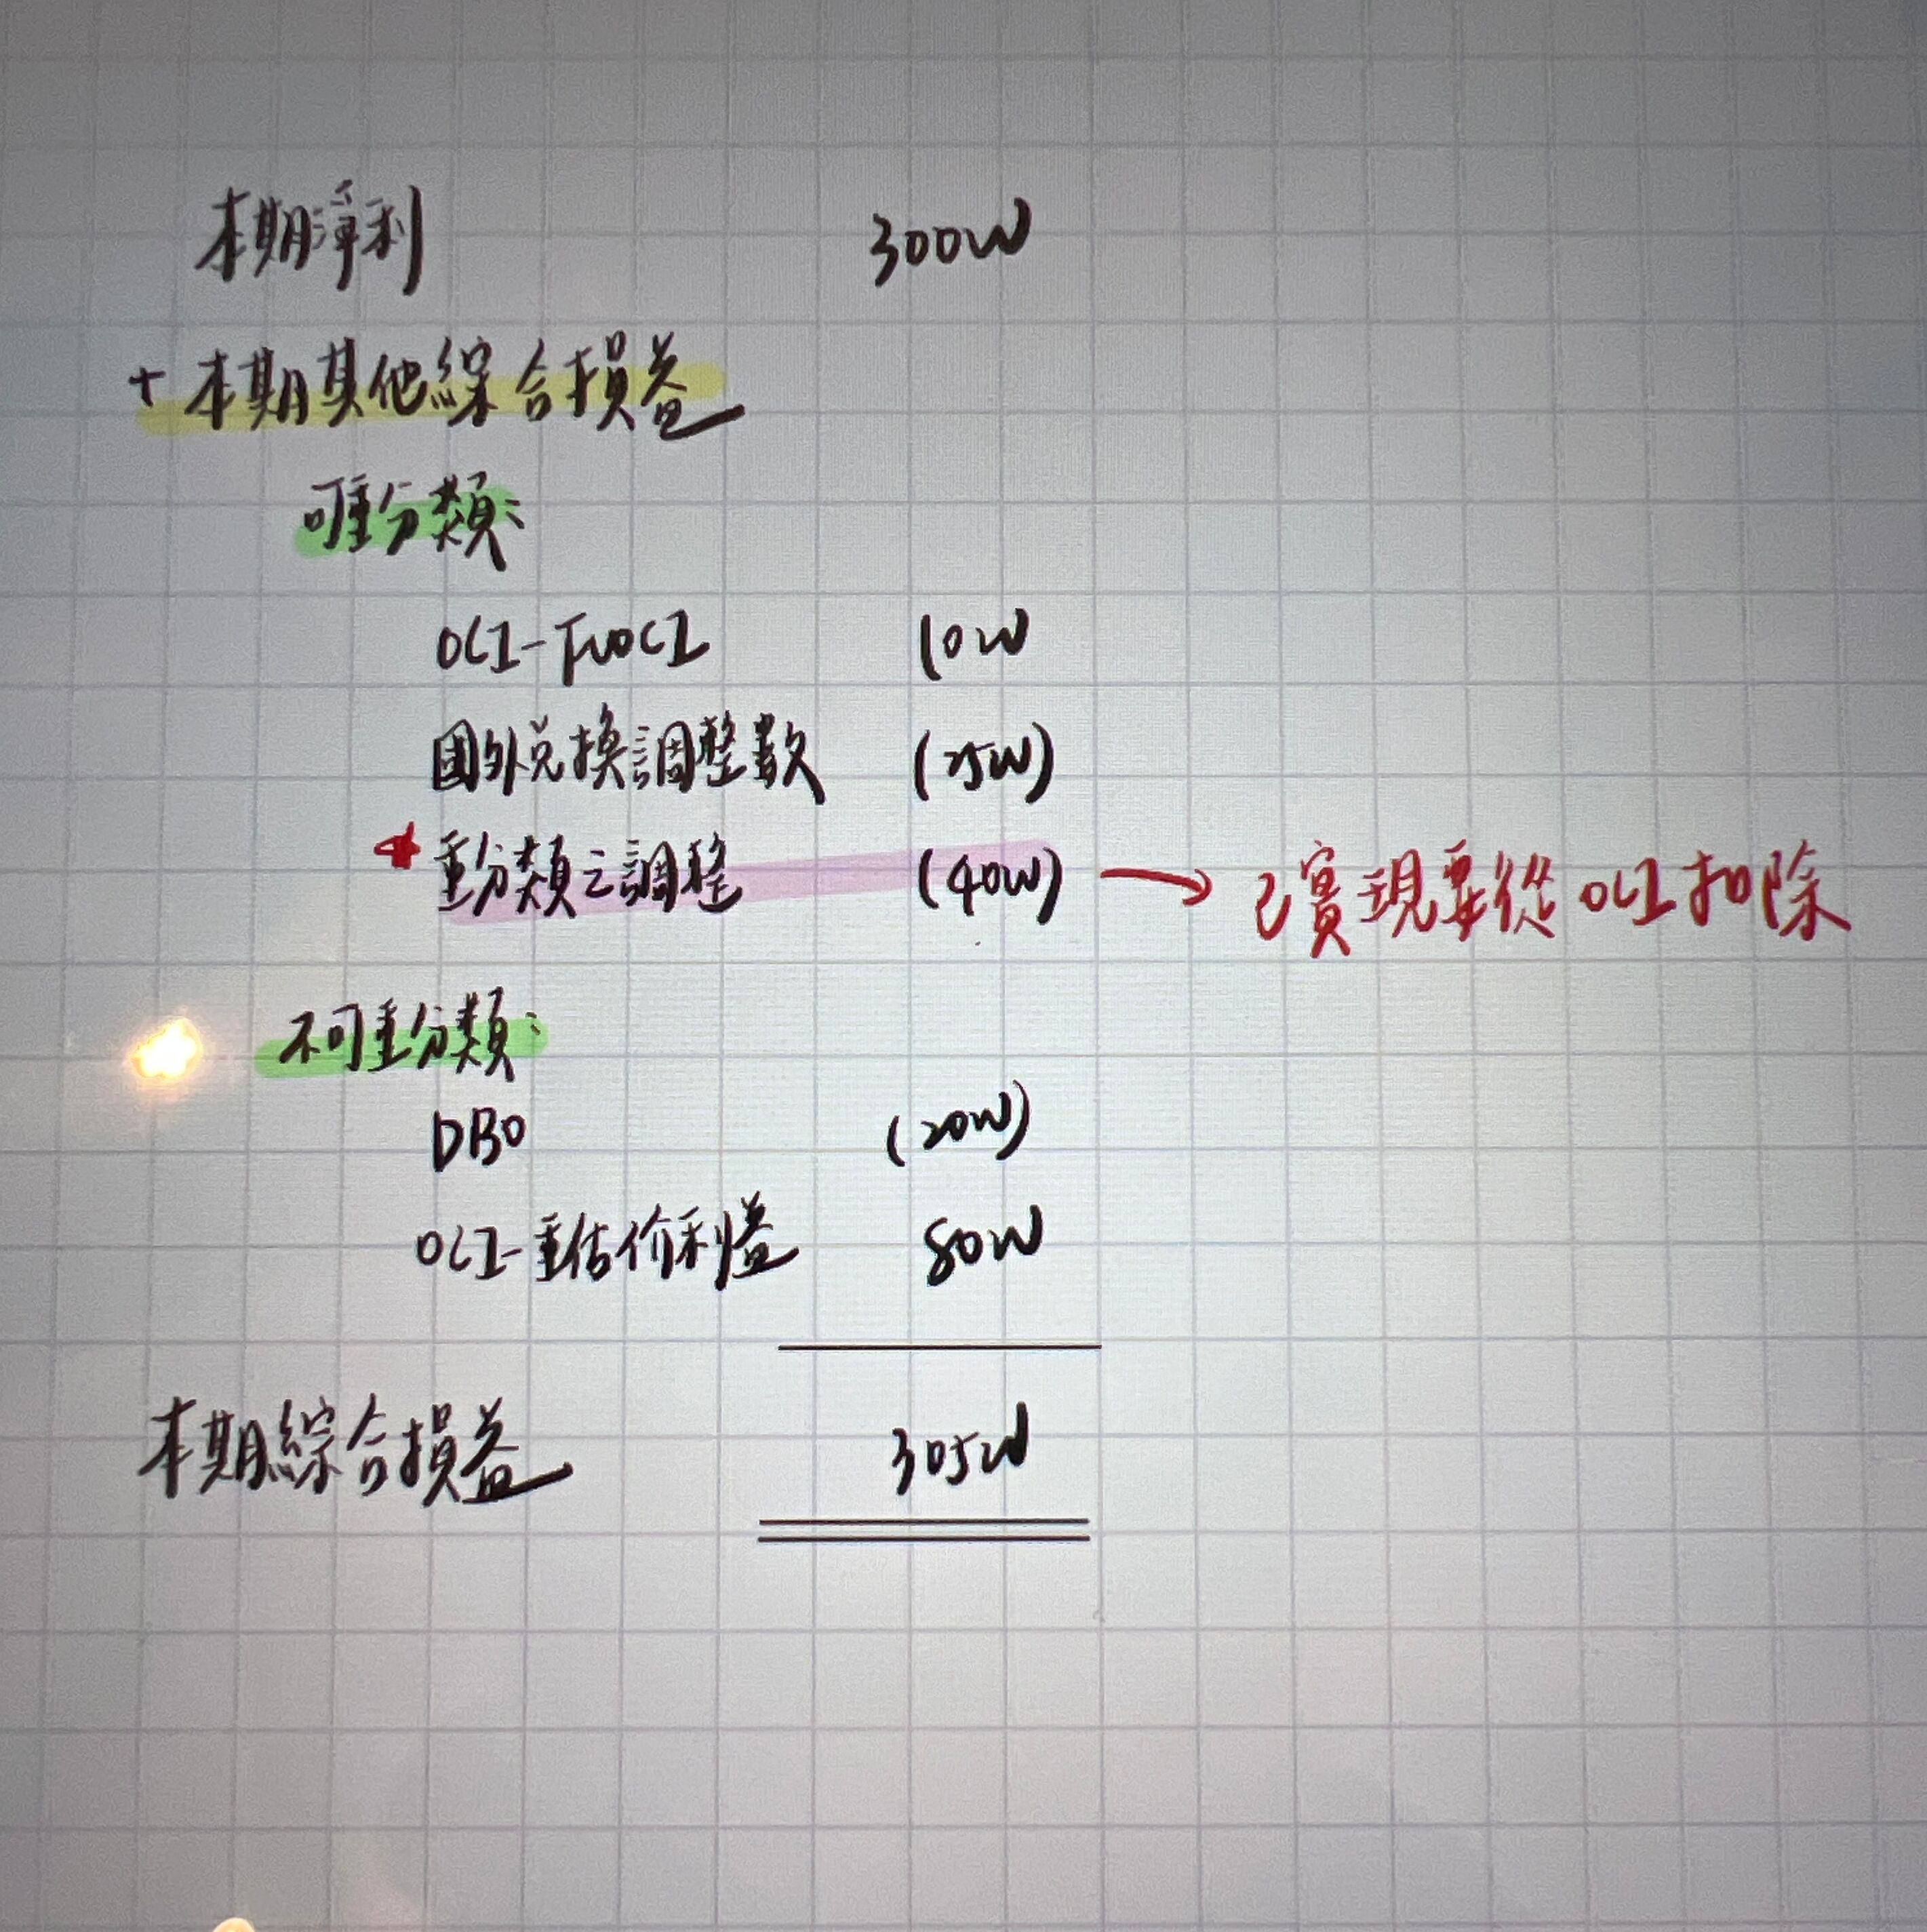 本期淨利 300W
+本期其他綜合損益
可重分類:
OCI-FVOCI 10W
國外兌換調整數 (25W)
重分類之調整 (40W) → 已實現要從OCI扣除
不可重分類:
DBO (20W)
OCI-重估价利益 80W
本期綜合損益 305W